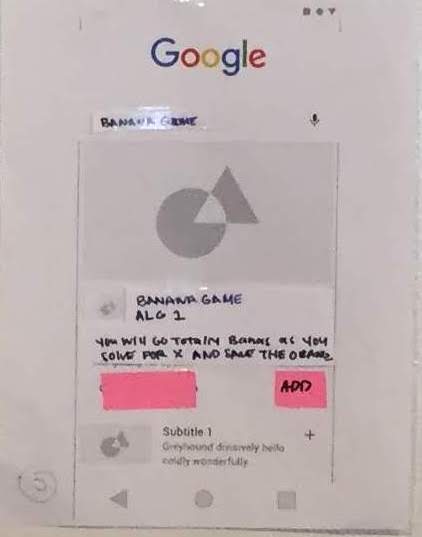 Google
BANANA GAME
BANANA GAME
ALG 1
YOU WILL GO TOTALLY BANAS AS YOU
SOLVE FOR X AND SAVE THE
ADD
Subtitle 1
Greyhound divisively hello
coldly wonderfully
5